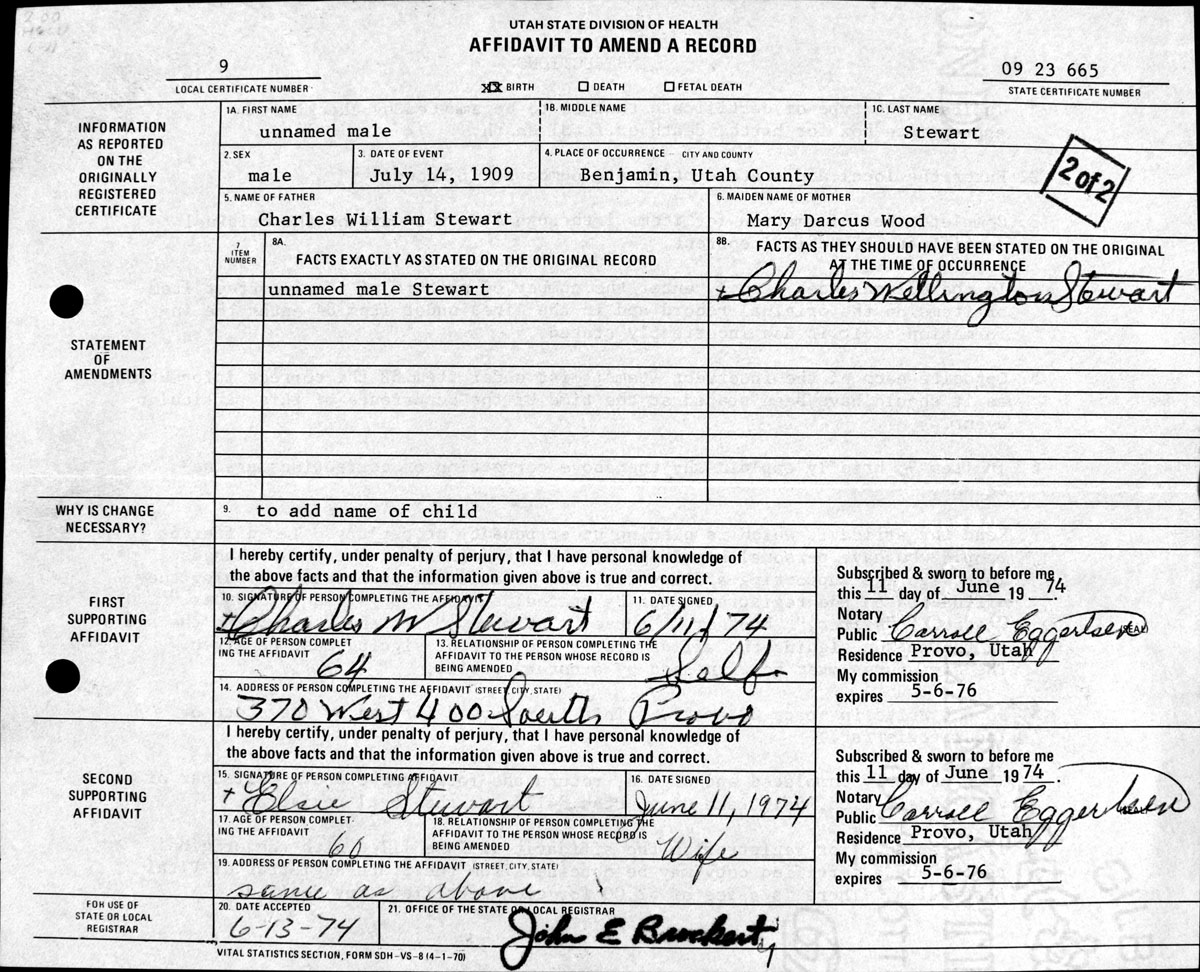 UTAH STATE DIVISION OF HEALTH
AFFIDAVIT TO AMEND A RECORD
9
LOCAL CERTIFICATE NUMBER
XX BIRTH DEATH FETAL DEATH
09 23 665
STATE CERTIFICATE NUMBER
INFORMATION AS REPORTED ON THE ORIGINALLY REGISTERED CERTIFICATE
1A. FIRST NAME
unnamed male
1B. MIDDLE NAME
1C. LAST NAME
Stewart
2. SEX
male
3. DATE OF EVENT
July 14, 1909
4. PLACE OF OCCURRENCE - CITY AND COUNTY
Benjamin, Utah County
2 of 2
5. NAME OF FATHER
Charles William Stewart
6. MAIDEN NAME OF MOTHER
Mary Darcus Wood
STATEMENT OF AMENDMENTS
7 ITEM NUMBER
8A.
FACTS EXACTLY AS STATED ON THE ORIGINAL RECORD
8B. FACTS AS THEY SHOULD HAVE BEEN STATED ON THE ORIGINAL
AT THE TIME OF OCCURRENCE
unnamed male Stewart
Charles Wellington Stewart
WHY IS CHANGE NECESSARY?
9. to add name of child
FIRST SUPPORTING AFFIDAVIT
I hereby certify, under penalty of perjury, that I have personal knowledge of
the above facts and that the information given above is true and correct.
10. SIGNATURE OF PERSON COMPLETING THE AFFIDAVIT
Charles W Stewart
11. DATE SIGNED
6/11/74
12. AGE OF PERSON COMPLETING THE AFFIDAVIT
64
13. RELATIONSHIP OF PERSON COMPLETING THE
AFFIDAVIT TO THE PERSON WHOSE RECORD IS
BEING AMENDED
Self
14. ADDRESS OF PERSON COMPLETING THE AFFIDAVIT (STREET, CITY, STATE)
370 West 400 South Provo
Subscribed & sworn to before me
this 11 day of June 19 74
Notary
Public Carroll Eggertsen
SEAL
Residence Provo, Utah
My commission
expires 5-6-76
SECOND SUPPORTING AFFIDAVIT
I hereby certify, under penalty of perjury, that I have personal knowledge of
the above facts and that the information given above is true and correct.
15. SIGNATURE OF PERSON COMPLETING AFFIDAVIT
Elsie Stewart
16. DATE SIGNED
June 11, 1974
17. AGE OF PERSON COMPLET-
ING THE AFFIDAVIT
60
18. RELATIONSHIP OF PERSON COMPLETING THE
AFFIDAVIT TO THE PERSON WHOSE RECORD IS
BEING AMENDED
Wife
19. ADDRESS OF PERSON COMPLETING THE AFFIDAVIT (STREET, CITY, STATE)
same as above
Subscribed & sworn to before me
this 11 day of June 19 74.
Notary
Public Carroll Eggertsen
Residence Provo, Utah
My commission
expires 5-6-76
FOR USE OF STATE OR LOCAL REGISTRAR
20. DATE ACCEPTED
6-13-74
21. OFFICE OF THE STATE OR LOCAL REGISTRAR
John E Brockert
VITAL STATISTICS SECTION, FORM SDH-VS-8 (4-1-70)